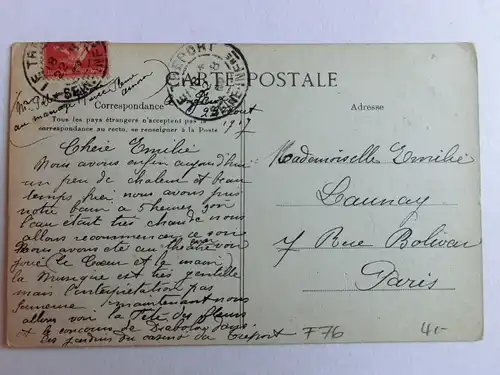 LE TRÉPORT
SEINE
LE TRÉPORT
SEINE INF
CARTE POSTALE
Correspondance
Tous les pays étrangers n'acceptent pas la
correspondance au recto, se renseigner à la Poste
Adresse
au manège
août
Chère Emilie
Nous avons enfin aujourd'hui
un peu de chaleur et beau
temps fixe nous avons pris
notre bain à 5 heures
l'eau était très chaude nous
allons recommencer ce soir
Nous avons été au théâtre voir
jouer (le Cœur et la main)
la Musique est très gentille
mais l'interprétation pas
fameuse maintenant nous
allons voir la Fête des fleurs
et le concours de dans
les jardins du casino du Tréport
Mademoiselle Emilie
Launay
7 Rue Bolivar
Paris
F76
4-